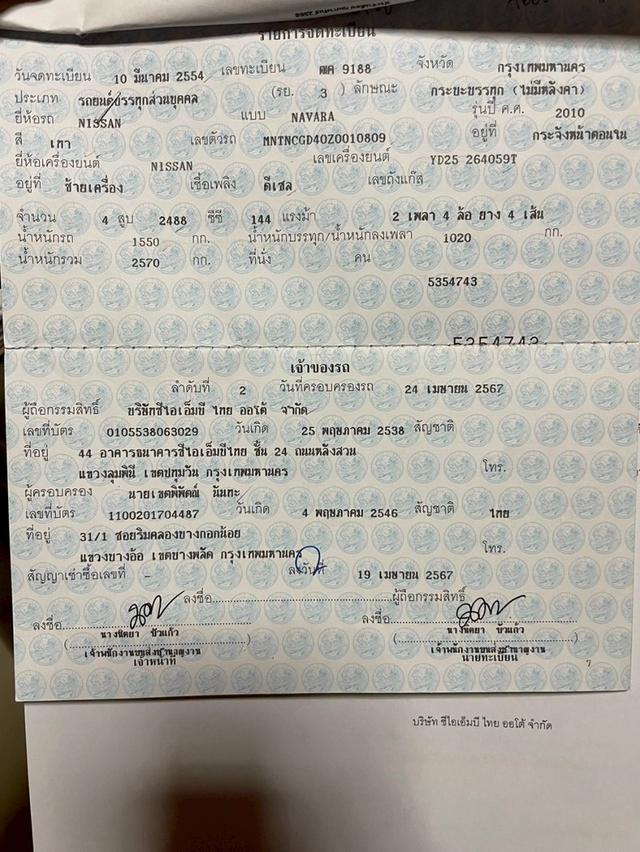 รายการจดทะเบียน
วันจดทะเบียน 10 มีนาคม 2554 เลขทะเบียน 9188 จังหวัด กรุงเทพมหานคร
ประเภท รถยนต์บรรทุกส่วนบุคคล (รย. 3 ) ลักษณะ กระบะบรรทุก (ไม่มีหลังคา)
ยี่ห้อรถ NISSAN แบบ NAVARA รุ่นปี ค.ศ. 2010
สี เทา เลขตัวรถ MNTNCGD40Z0010809 อยู่ที่ กระจังหน้าตอนใน
ยี่ห้อเครื่องยนต์ NISSAN เลขเครื่องยนต์ YD25 264059T
อยู่ที่ ซ้ายเครื่อง เชื้อเพลิง ดีเซล เลขถังแก๊ส
จำนวน 4 สูบ 2488 ซีซี 144 แรงม้า 2 เพลา 4 ล้อ ยาง 4 เส้น
น้ำหนักรถ 1550 กก. น้ำหนักบรรทุก/น้ำหนักลงเพลา 1020 กก.
น้ำหนักรวม 2570 กก. ที่นั่ง คน
5354743
5354743
เจ้าของรถ
ลำดับที่ 2 วันที่ครอบครองรถ 24 เมษายน 2567
ผู้ถือกรรมสิทธิ์ บริษัทซีไอเอ็มบี ไทย ออโต้ จำกัด
เลขที่บัตร 0105538063029 วันเกิด 25 พฤษภาคม 2538 สัญชาติ
ที่อยู่ 44 อาคารธนาคารซีไอเอ็มบีไทย ชั้น 24 ถนนหลังสวน
แขวงลุมพินี เขตปทุมวัน กรุงเทพมหานคร โทร.
ผู้ครอบครอง นายเขตพิพัฒน์ นันทะ
เลขที่บัตร 1100201704487 วันเกิด 4 พฤษภาคม 2546 สัญชาติ ไทย
ที่อยู่ 31/1 ซอยริมคลองบางกอกน้อย
แขวงบางอ้อ เขตบางพลัด กรุงเทพมหานคร โทร.
สัญญาเช่าซื้อเลขที่ - ลงวันที่ 19 เมษายน 2567
ลงชื่อ ผู้ถือกรรมสิทธิ์
ลงชื่อ ลงชื่อ
นางนิตยา บัวแก้ว นางนิตยา บัวแก้ว
( ) ( )
เจ้าพนักงานขนส่งชำนาญงาน เจ้าพนักงานขนส่งชำนาญงาน
เจ้าหน้าที่ นายทะเบียน
7
บริษัท ซีไอเอ็มบี ไทย ออโต้ จำกัด